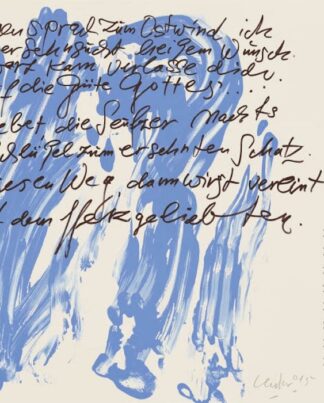 sprach zum Ostwind ich
ersehnsücht heißem Wunsch.
kam verlasse dich
f die Güte Gottes...
ebet die Seufzer nachts
schlüssel zum ersehnten Schatz.
iesen Weg dann wirst vereint
dem Herzgeliebten.